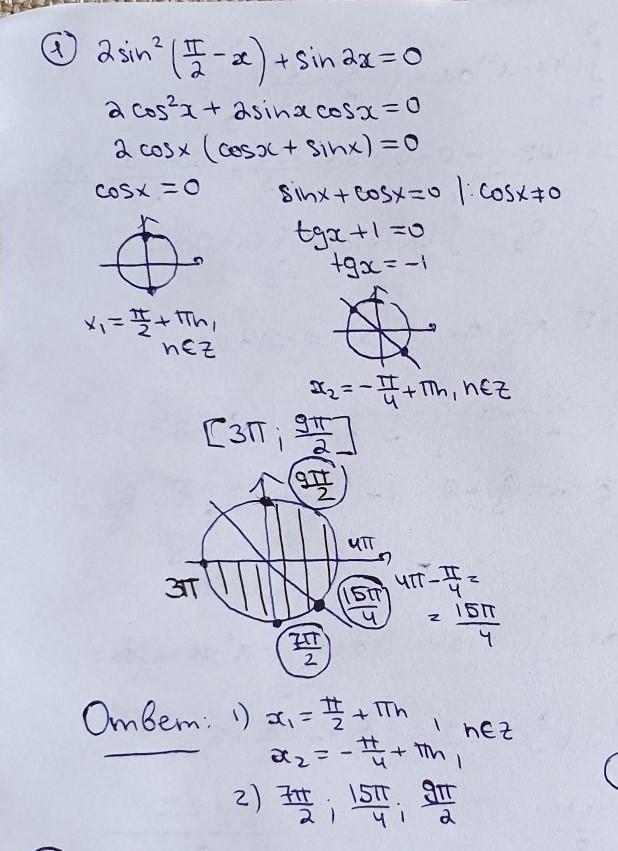 ① 2sin²(π/2 - x) + sin2x = 0
2cos²x + 2sinxcosx = 0
2cosx (cosx + sinx) = 0
cosx = 0
x₁ = π/2 + πn,
n∈Z
sinx + cosx = 0 |: cosx ≠ 0
tgx + 1 = 0
tgx = -1
x₂ = -π/4 + πn, n∈Z
[3π; 9π/2]
9π/2
4π
3π
15π/4
4π - π/4 =
= 15π/4
7π/2
Ответ: 1) x₁ = π/2 + πn, n∈Z
x₂ = -π/4 + πn,
2) 7π/2; 15π/4; 9π/2